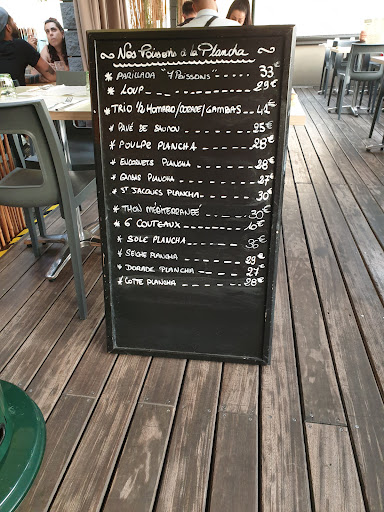 Nos Poissons à la Plancha
* PARILLADA "4 POISSONS" 33€
* LOUP 29€
* TRIO 1/2 HOMARD/DORADE/GAMBAS 42€
* PAVÉ DE SAUMON 25€
* POULPE PLANCHA 28€
* ENCORNETS PLANCHA 28€
* GAMBAS PLANCHA 27€
* ST JACQUES PLANCHA 30€
* THON MÉDITERRANEÉ 30€
* 6 COUTEAUX
* SOLE PLANCHA 36€
* SEICHE PLANCHA 29€
* DORADE PLANCHA 27€
* LOTTE PLANCHA 28€